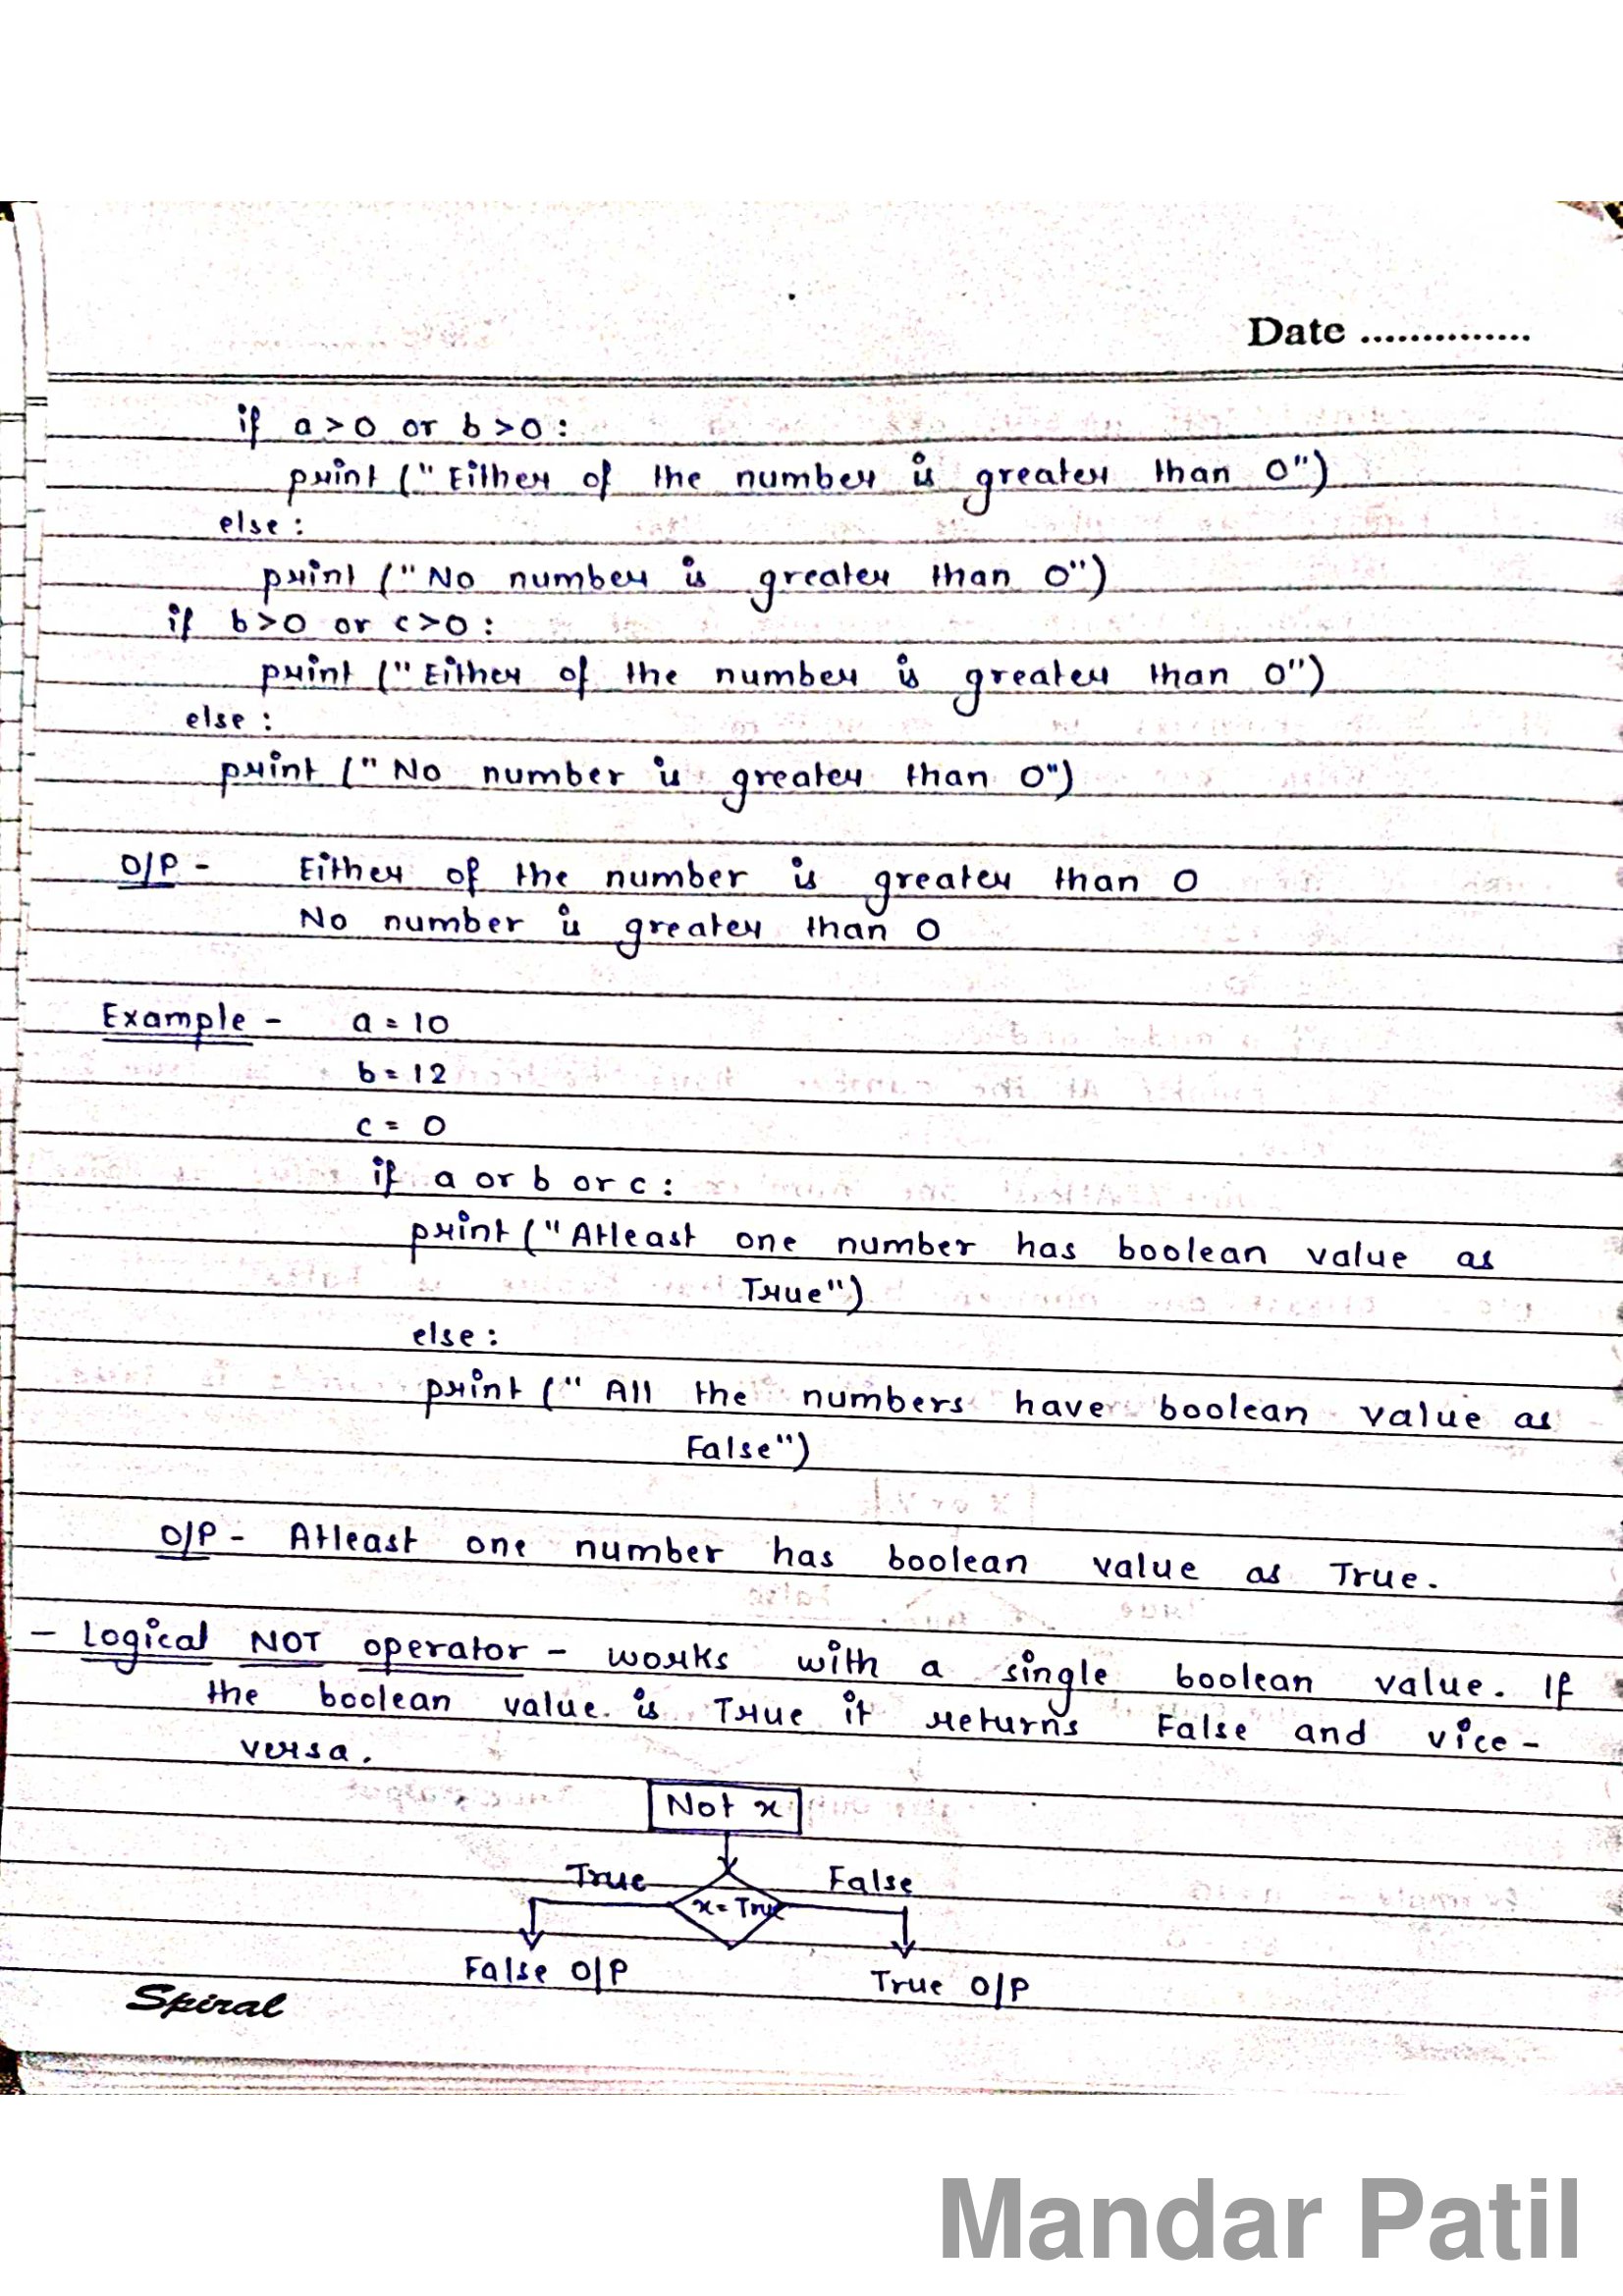 Date ..............
if a>0 or b>0:
print ("Either of the number is greater than 0")
else:
print ("No number is greater than 0")
if b>0 or c>0:
print ("Either of the number is greater than 0")
else:
print ("No number is greater than 0")
O/P - Either of the number is greater than 0
No number is greater than 0
Example - a = 10
b = 12
c = 0
if a or b or c:
print ("Atleast one number has boolean value as
True")
else:
print (" All the numbers have boolean value as
False")
O/P - Atleast one number has boolean value as True.
- Logical NOT operator - works with a single boolean value. If
the boolean value is True it returns False and vice-
versa.
Not x
True False
x = True
False O/P True O/P
Spiral
Mandar Patil